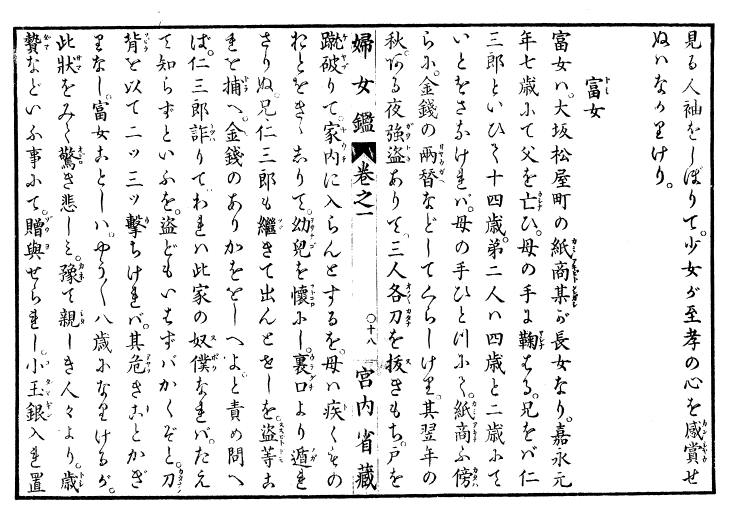 見る人袖をしぼりて。少女が至孝の心を感賞せ
ぬハなかりけり。
富女
富女ハ。大坂松屋町の紙商某が長女なり。嘉永元
年七歳にて父を亡ひ。母の手に鞠はる。兄をバ仁
三郎といひて十四歳。弟二人ハ四歳と二歳にて
いとをさなけれバ。母の手ひとつにて。紙商ふ傍
らに。金錢の兩替などしてくらしけり。其翌年の
秋。ある夜強盜ありて。三人各刀を拔きもち。戸を
婦女鑑 卷之一 〇十八 宮内省藏
蹴破りて。家内に入らんとするを。母ハ疾くその
おとをきゝしりて。幼兒を懷にし。裏口より遁れ
さりぬ。兄仁三郎も繼きて出んとせしを。盜等こ
れを捕へ。金錢のありかををしへよと責め問へ
ば。仁三郎詐りてわれハ此家の奴僕なれバ。たえ
て知らずといふを。盜どもいらずバかくぞと。刀
背を以て二ッ三ッ撃ちけれバ。其危きことかぎ
りなし。富女ことしハ。やう〱八歳になりけるが。
此狀をみて驚き悲しミ。豫て親しき人々より。歳
贄などいふ事にて。贈與せられし。小玉銀入れ置